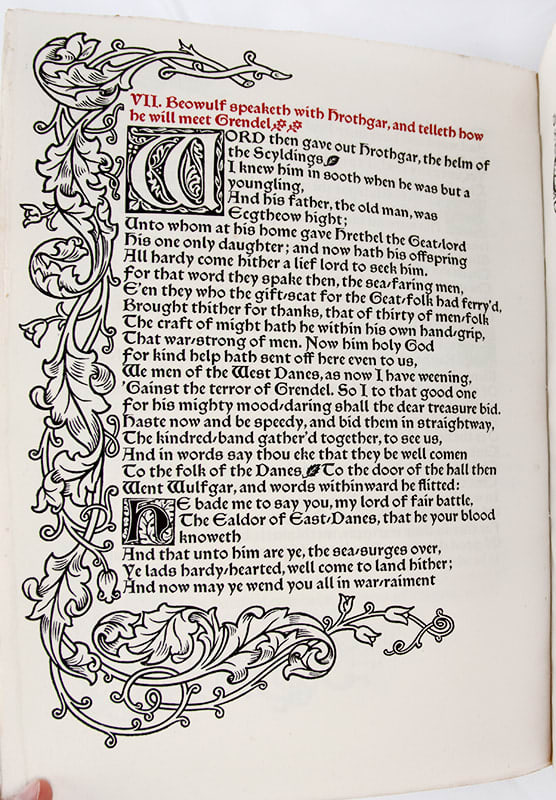 VII. Beowulf speaketh with Hrothgar, and telleth how
he will meet Grendel
WORD then gave out Hrothgar, the helm of
the Scyldings
I knew him in sooth when he was but a
youngling,
And his father, the old man, was
Ecgtheow hight;
Unto whom at his home gave Hrethel the Geat-lord
His one only daughter; and now hath his offspring
All hardy come hither a lief lord to seek him.
For that word they spake then, the sea-faring men,
E'en they who the gift-scat for the Geat-folk had ferry'd,
Brought thither for thanks, that of thirty of men-folk
The craft of might hath he within his own hand-grip,
That war-strong of men. Now him holy God
For kind help hath sent off here even to us,
We men of the West Danes, as now I have weening,
'Gainst the terror of Grendel. So I to that good one
For his mighty mood-daring shall the dear treasure bid.
Haste now and be speedy, and bid them in straightway,
The kindred-band gather'd together, to see us,
And in words say thou eke that they be well comen
To the folk of the Danes. To the door of the hall then
Went Wulfgar, and words withinward he flitted:
HE bade me to say you, my lord of fair battle,
The Ealdor of East-Danes, that he your blood
knoweth
And that unto him are ye, the sea-surges over,
Ye lads hardy-hearted, well come to land hither;
And now may ye wend you all in war-raiment